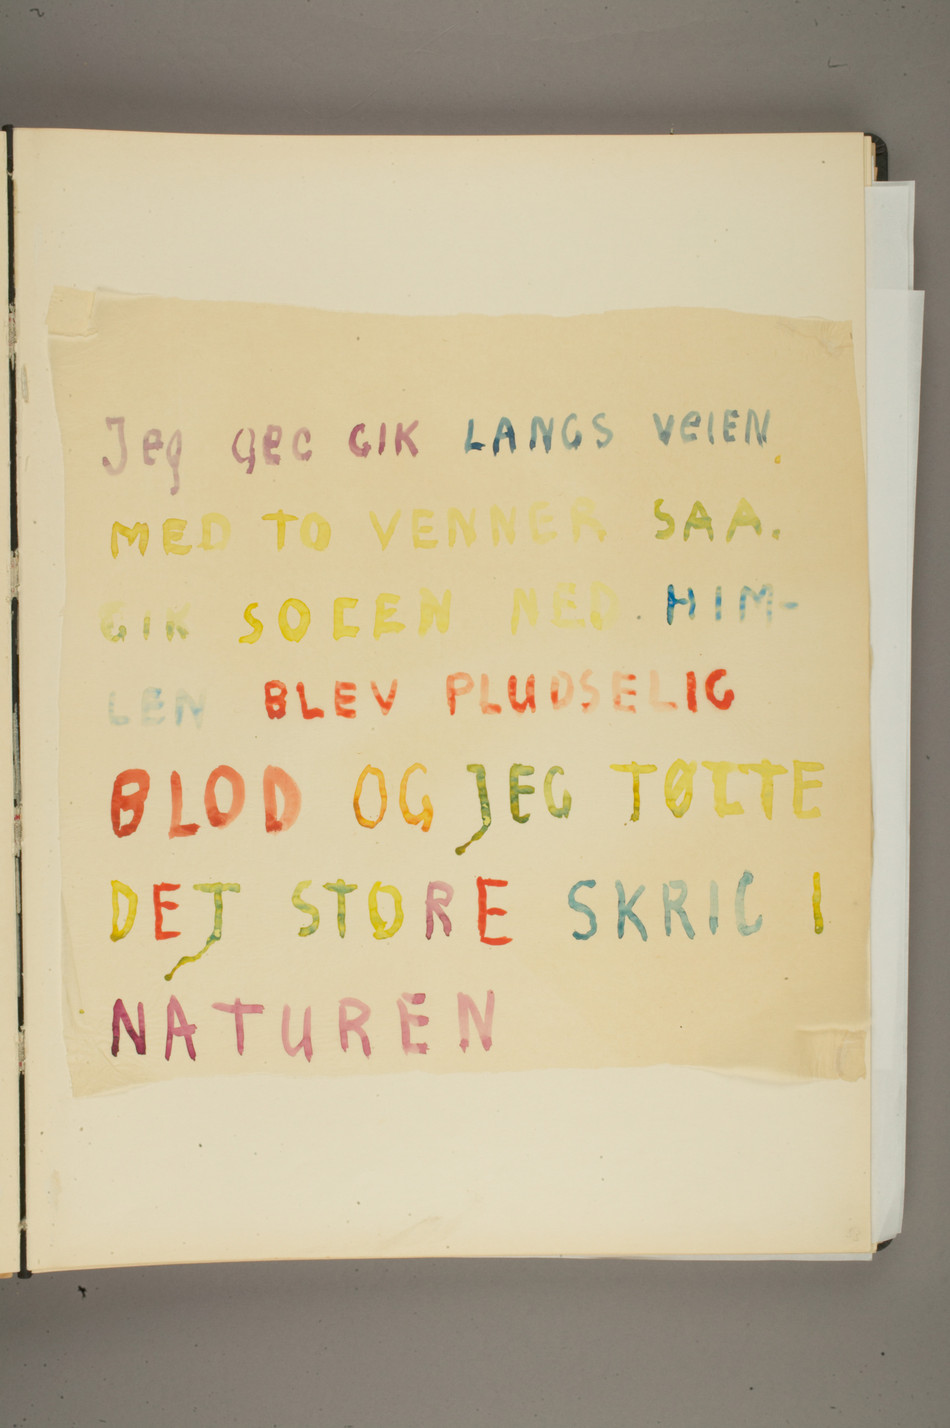 Jeg gec GIK LANGS VeIEN
MED TO VENNER SAA.
GIK SOLEN NED. HIM-
LEN BLEV PLUDSELIG
BLOD OG JEG TØLTE
DET STORE SKRIG I
NATUREN